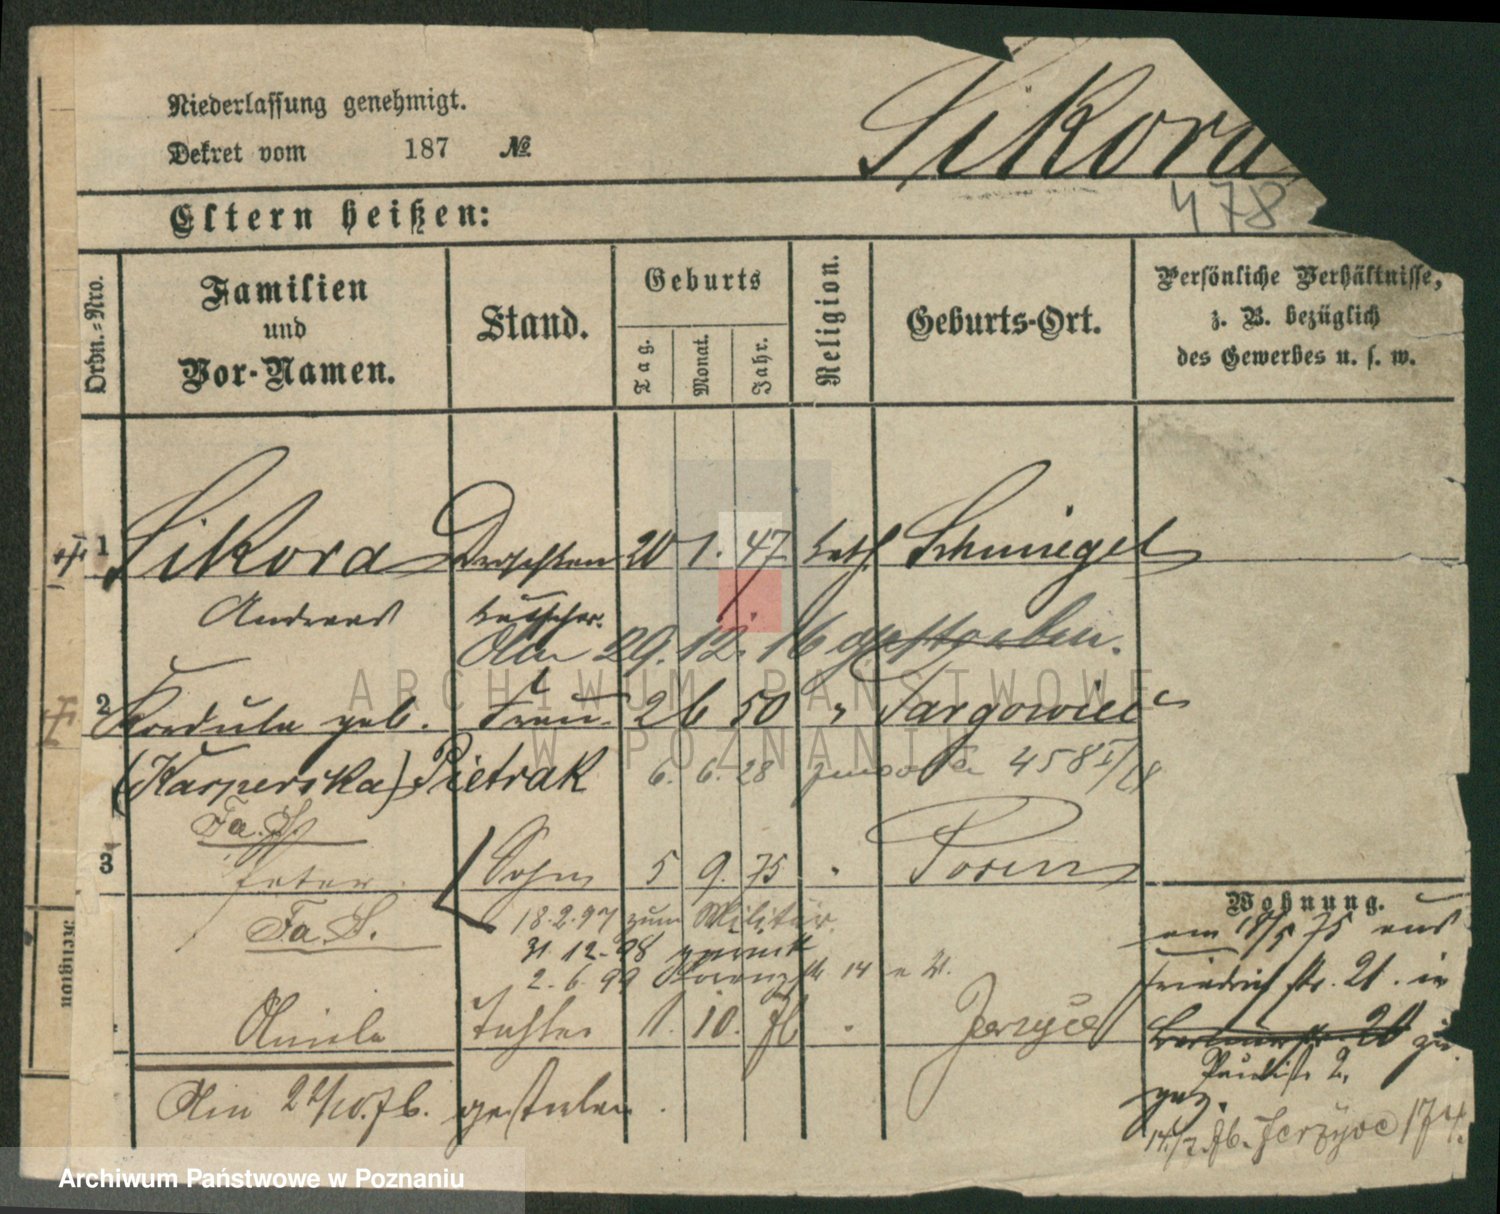 Niederlassung genehmigt.
Sikora
Dekret vom 187 №
478
Eltern heißen:
Ordn.-Nro.
Familien
und
Vor-Namen.
Stand.
Geburts
Tag.
Monat.
Jahr.
Religion.
Geburts-Ort.
Persönliche Verhältnisse,
z. B. bezüglich
des Gewerbes u. s. w.
1 Sikora Droschken 20 1. 47 kath. Schmiegel
Andreas kutscher.
Am 29. 12. 16 gestorben.
2 Kordula geb. Frau 26 50 " Targowice
(Kasperska) Pietrak 6. 6. 28 458
Fa. S.
3 Peter Sohn 5 9. 75 " Posen
Fa. S. 18.2.97 zum Militär.
31.12.98
2.6.99 14
Aniela Tochter 1. 10. 76 " Jerzyce
Am 26/10.76. gestorben.
Wohnung.
am 18/5 75 aus
Friedrichstr. 21. in
20
2,
gez.
14/7.76. Jerzyce 174.
ARCHIWUM PAŃSTWOWE
W POZNANIU
Archiwum Państwowe w Poznaniu